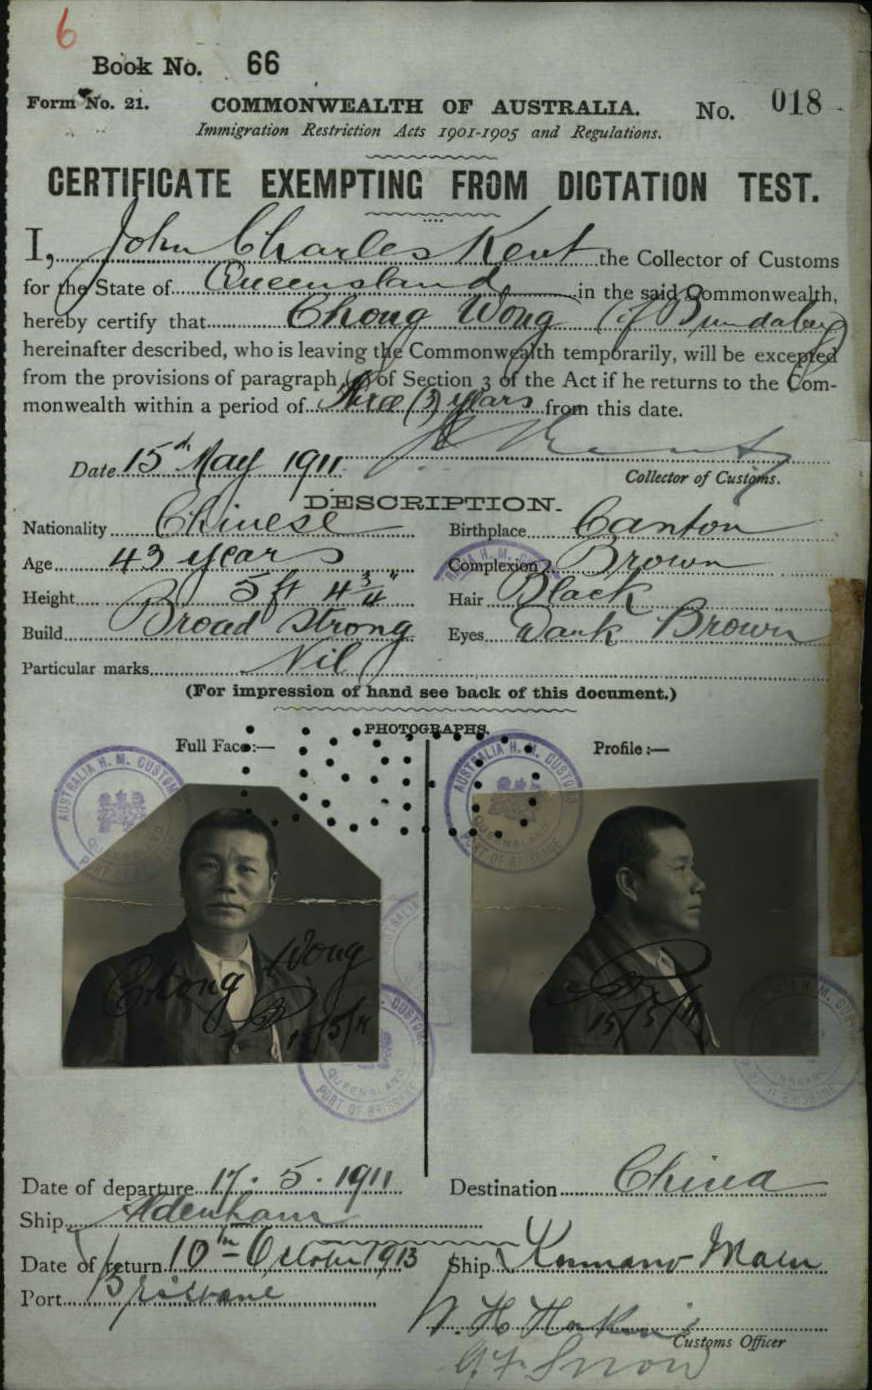 6
Book No. 66
Form No. 21. COMMONWEALTH OF AUSTRALIA. No. 018
Immigration Restriction Acts 1901-1905 and Regulations.
CERTIFICATE EXEMPTING FROM DICTATION TEST.
I, John Charles Kent the Collector of Customs
for the State of Queensland in the said Commonwealth,
hereby certify that Chong Wong (of Bundaberg)
hereinafter described, who is leaving the Commonwealth temporarily, will be excepted
from the provisions of paragraph of Section 3 of the Act if he returns to the Com-
monwealth within a period of Three (3) years from this date.
Date 15th May 1911
Collector of Customs.
DESCRIPTION.
Nationality Chinese Birthplace Canton
Age 43 years Complexion Brown
Height 5 ft 4 3/4" Hair Black
Build Broad Strong Eyes Dark Brown
Particular marks Nil
(For impression of hand see back of this document.)
PHOTOGRAPHS.
Full Face:— Profile:—
AUSTRALIA H. M. CUSTOMS QUEENSLAND PORT OF BRISBANE
AUSTRALIA H. M. CUSTOMS QUEENSLAND PORT OF BRISBANE
Chong Wong
15/5/11 15/5/11
QUEENSLAND PORT OF BRISBANE
Date of departure 17. 5. 1911 Destination China
Ship Aldenham
Date of return 10th October 1913 Ship Kumano Maru
Port Brisbane
Customs Officer